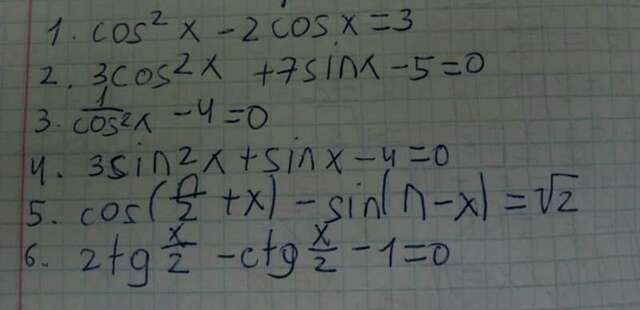 1. cos² x - 2 cos x = 3
2. 3cos²x + 7sinx - 5 = 0
3. 1/cos²x - 4 = 0
4. 3sin²x + sin x - 4 = 0
5. cos(π/2 + x) - sin(π - x) = √2
6. 2tg x/2 - ctg x/2 - 1 = 0